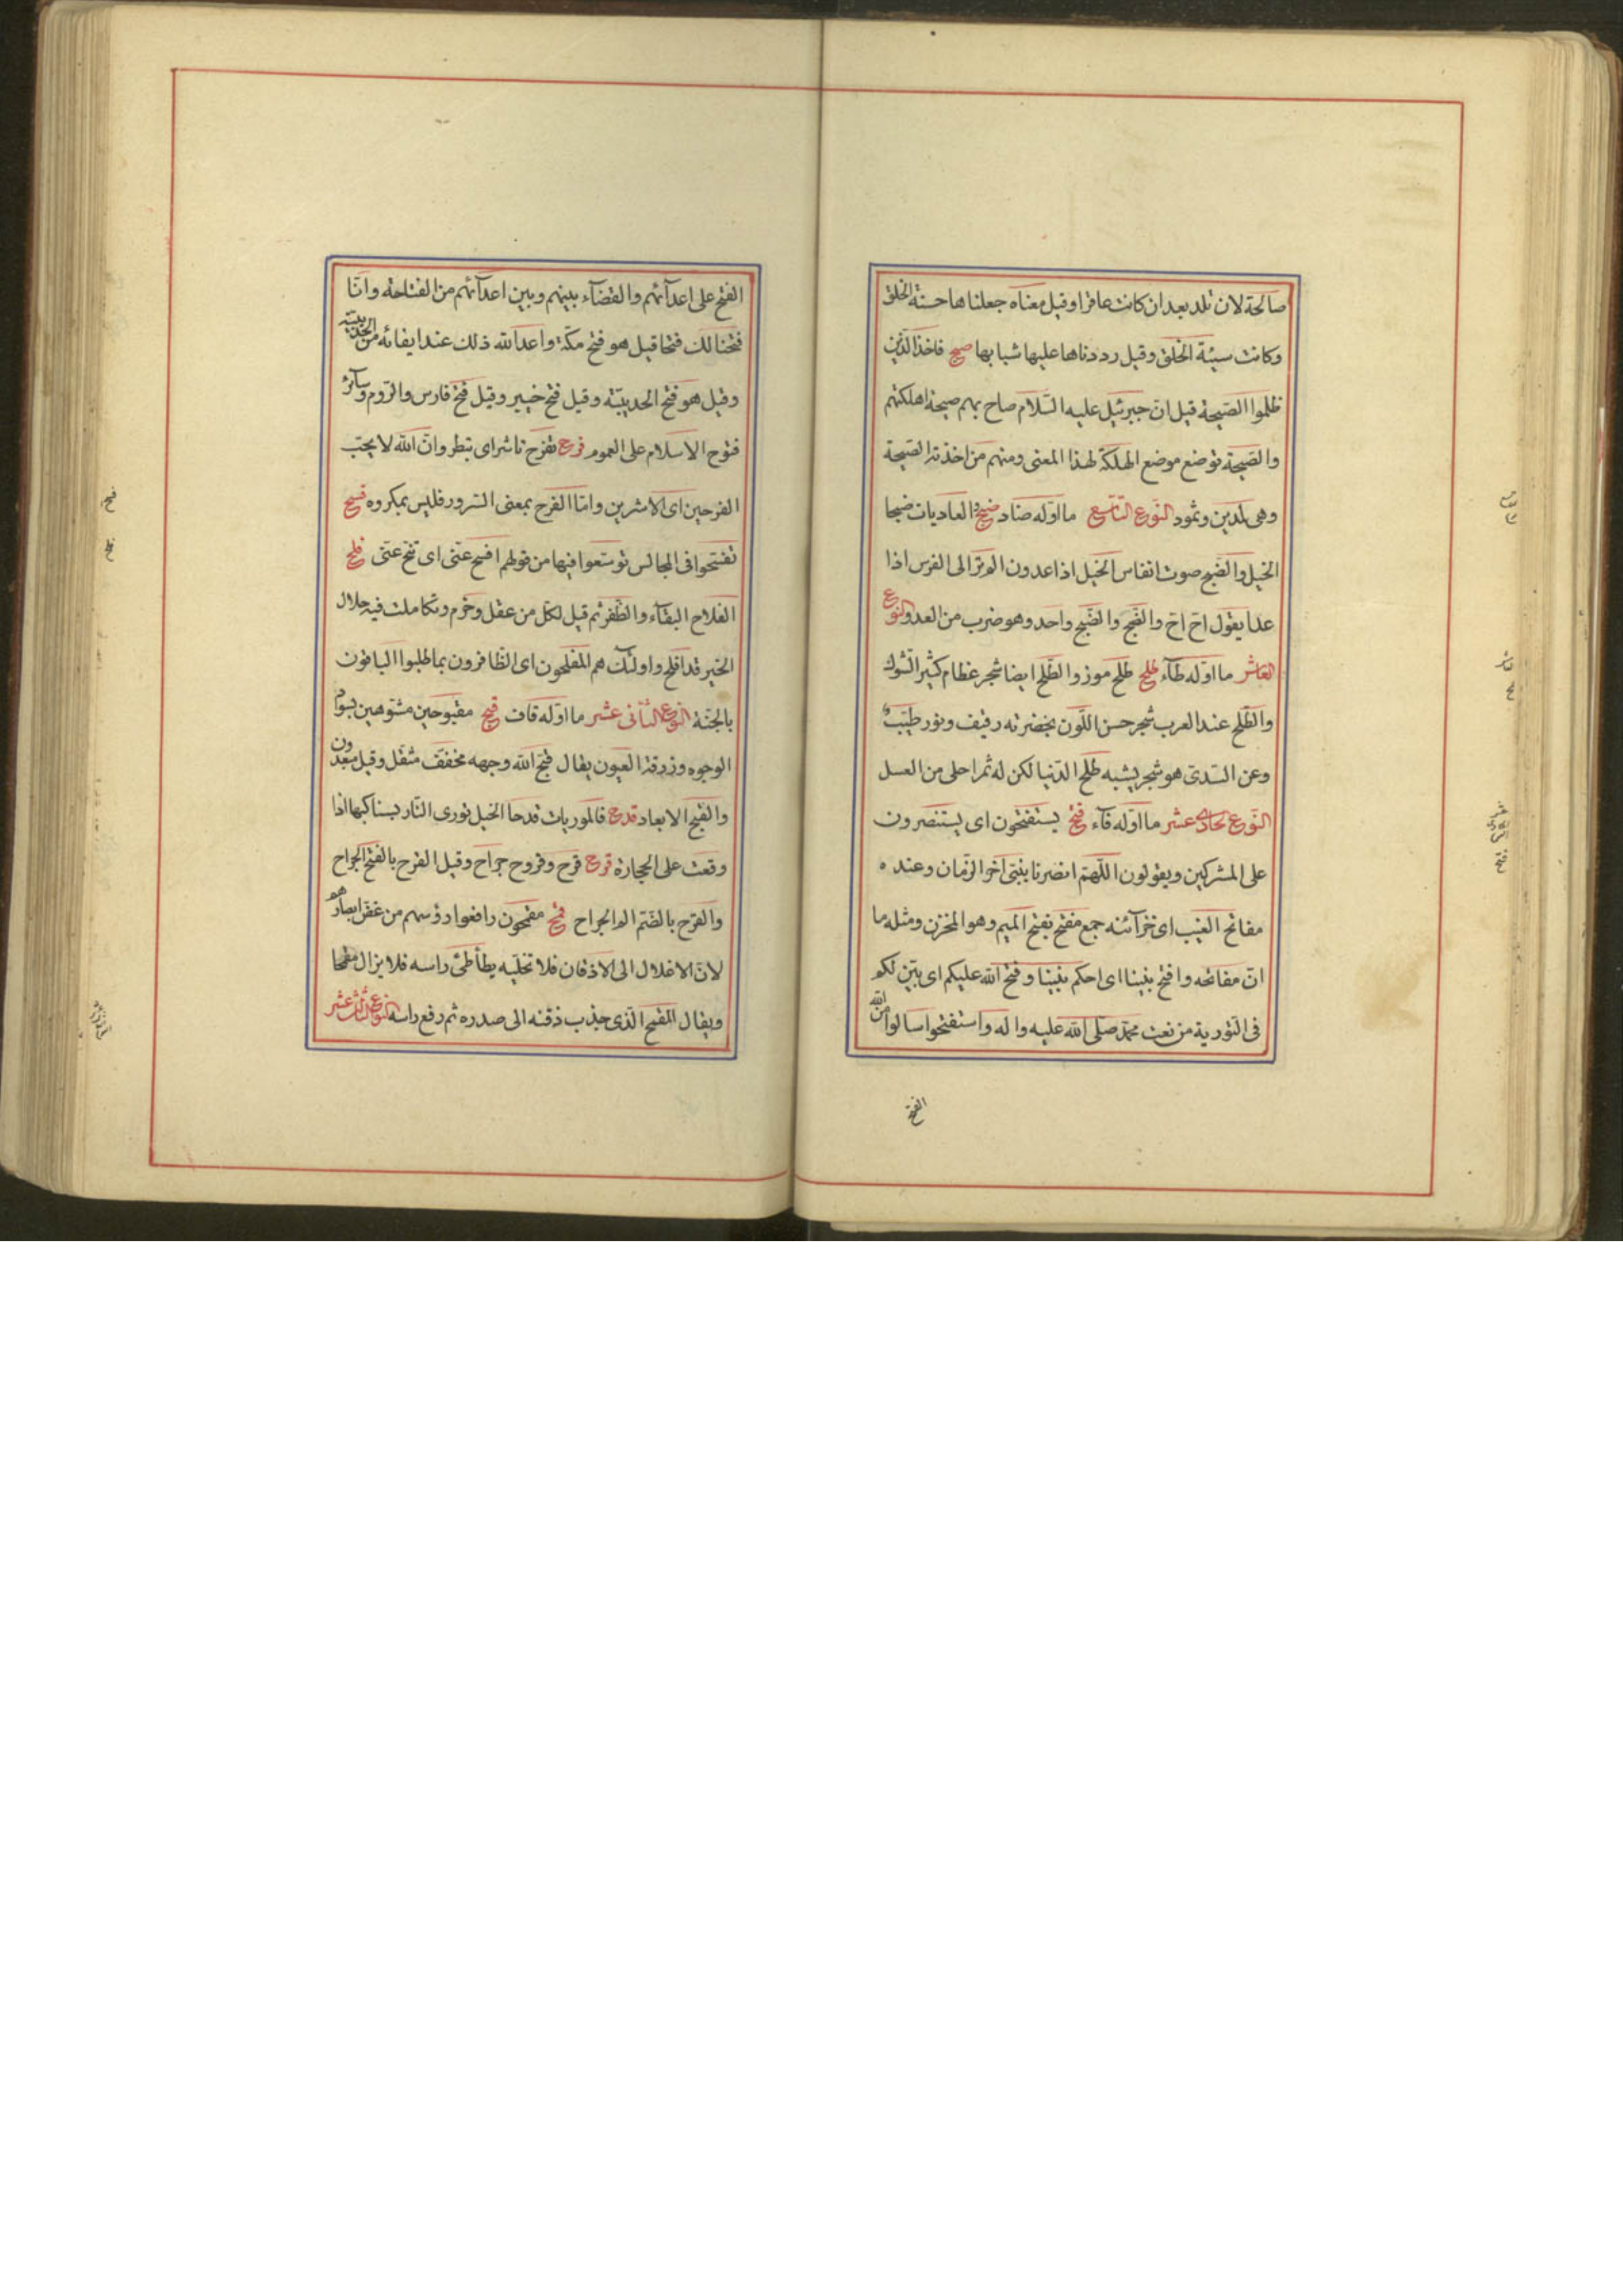 صالحة لان تلد بعد ان كانت عاقرا وقيل معناه جعلناها حسنة الخلق
وكانت سيئة الخلق وقيل رددناها عليها شبابها صيح فاخذ الذين
ظلموا الصيحة قيل ان جبرئيل عليه السلام صاح بهم صيحة اهلكتهم
والصيحة توضع موضع الهلكة لهذا المعنى ومنهم من اخذته الصيحة
وهى لمدين وثمود النوع التاسع ما اوله ضاد ضبح والعاديات ضبحا
الخيل والضبح صوت انفاس الخيل اذا عدون الم تر الى الفرس اذا
عدا يقول اح اح والضبح والضبح واحد وهو ضرب من العدو النوع
العاشر ما اوله طآء طلح طلح موز والطلح ايضا شجر عظام كثير الشوك
والطلح عند العرب شجر حسن اللون بخضرته رفيف ونور طيب
وعن السدى هو شجر يشبه طلح الدنيا لكن له ثمر احلى من العسل
النوع الحادى عشر ما اوله فآء فتح يستفتحون اى يستنصرون
على المشركين ويقولون اللهم انصرنا بنبى آخر الزمان وعنده
مفاتح الغيب اى خزآئنه جمع مفتح بفتح الميم وهو المخزن ومثله ما
ان مفاتحه وافتح بيننا اى احكم بيننا وفتح الله عليكم اى بين لكم
فى التورية من نعت محمد صلى الله عليه واله واستفتحوا سالوا من الله
الفتح
الفتح على اعدآئهم والقضآء بينهم وبين اعدآئهم من الفتاحة وانا
فتحنا لك فتحا قيل هو فتح مكة واعد الله ذلك عند ايفائه من الحديبية
وقيل هو فتح الحديبية وقيل فتح خيبر وقيل فتح فارس والروم وسآئر
فتوح الاسلام على العموم فرح تفرح تاشر اى تبطر وان الله لا يحب
الفرحين اى الاشرين واما الفرح بمعنى السرور فليس بمكروه فسح
تفسحوا فى المجالس توسعوا فيها من قولهم افسح عنى اى تنح عنى فلح
الفلاح البقآء والظفر ثم قيل لكل من عقل وحزم وتكاملت فيه خلال
الخير قد افلح واولئك هم المفلحون اى الظافرون بما طلبوا الباقون
بالجنة النوع الثانى عشر ما اوله قاف قبح مقبوحين مشوهين بسواد
الوجوه وزرقة العيون يقال قبح الله وجهه مخفف مثقل وقيل مبعدون
والقبح الابعاد قدح فالموريات قدحا الخيل تورى النار بسنابكها اذا
وقعت على الحجارة قرح قرح وقروح جراح وقيل القرح بالفتح الجراح
والقرح بالضم الم الجراح قمح مقمحون رافعوا رؤسهم من غض ابصارهم
لان الاغلال الى الاذقان فلا تخليه يطأطئ راسه فلا يزال مقمحا
ويقال المقمح الذى جذب ذقنه الى صدره ثم رفع راسه النوع الثالث عشر